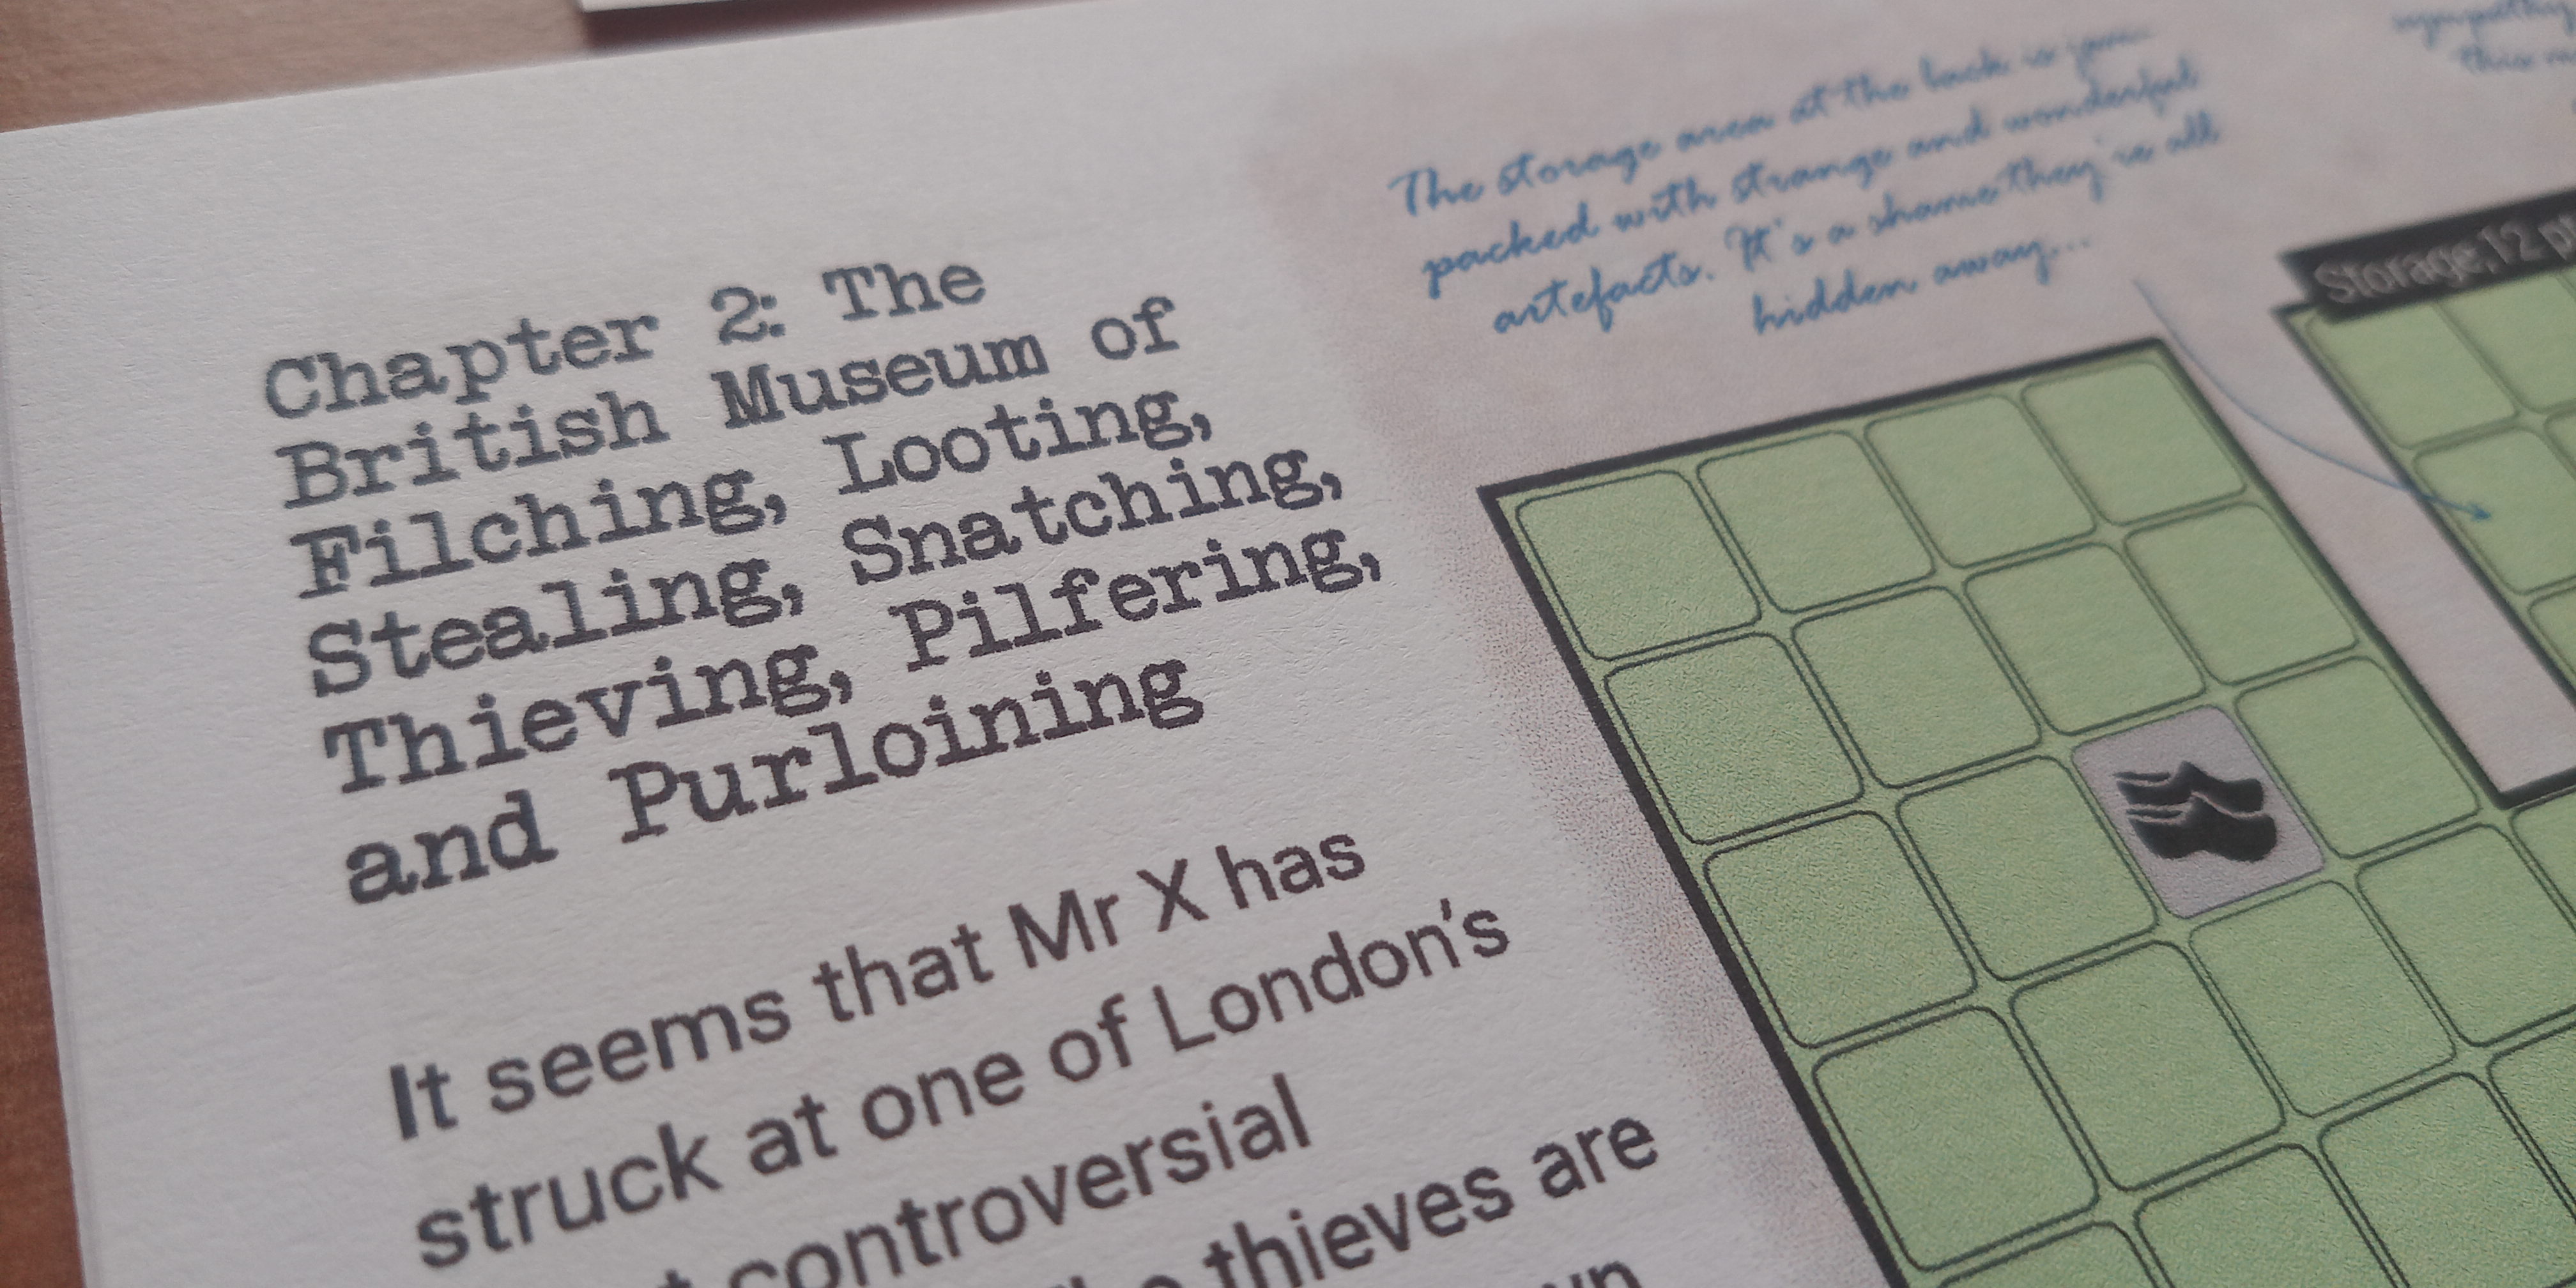 Chapter 2: The
British Museum of
Filching, Looting,
Stealing, Snatching,
Thieving, Pilfering,
and Purloining
It seems that Mr X has
struck at one of London's
controversial
thieves are
The storage area at the back is
packed with strange and wonderful
artefacts. It's a shame they're all
hidden away...
sympathy
this
Storage, 12